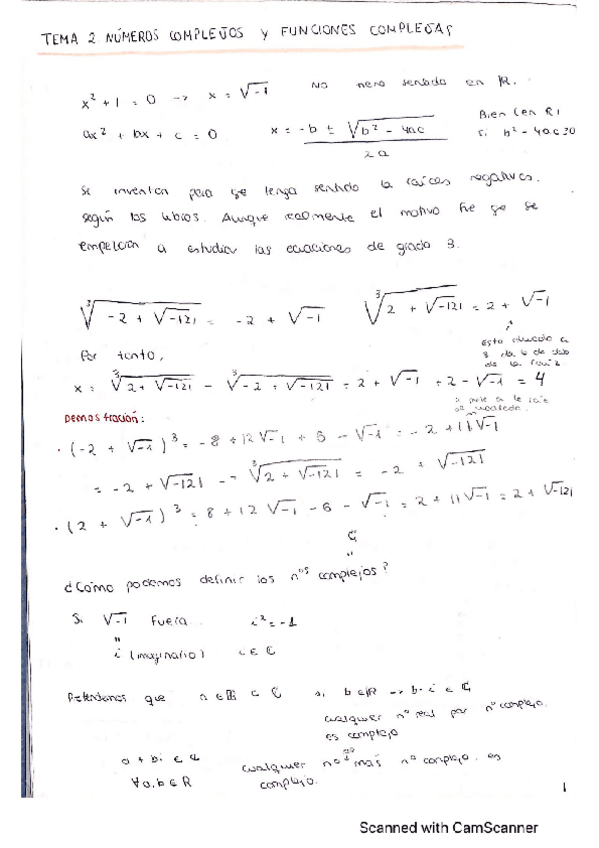 TEMA 2 NÚMEROS COMPLEJOS Y FUNCIONES COMPLEJAS
x² + 1 = 0 → x = √-1 No tiene sentido en ℝ.
ax² + bx + c = 0 x = -b ± √b² - 4ac / 2a Bien (en ℝ) si b² - 4ac ≥ 0
Se inventan para que tenga sentido la raíces negativas.
según los libros. Aunque realmente el motivo fue que se
empezaron a estudiar las ecuaciones de grado 3.
∛-2 + √-121 = -2 + √-1 ∛2 + √-121 = 2 + √-1
Esto elevado a
3 da lo de
la raíz.
Por tanto,
x = ∛2 + √-121 - ∛-2 + √-121 = 2 + √-1 + 2 - √-1 = 4
Demostración:
· (-2 + √-1)³ = -8 + 12√-1 + 6 - √-1 = -2 + 11√-1
= -2 + √-121 → ∛2 + √-121 = -2 + √-121
· (2 + √-1)³ = 8 + 12√-1 - 6 - √-1 = 2 + 11√-1 = 2 + √-121
ℂ
"
¿Cómo podemos definir los nºs complejos?
Si √-1 fuera... i² = -1
"
i (imaginario) i ∈ ℂ
Pretendemos que ℝ ⊂ ℂ si b ∈ ℝ → b·i ∈ ℂ
cualquier nº real por nº complejo.
es complejo
a + bi ∈ ℂ cualquier nº más nº complejo. es
∀a,b ∈ ℝ complejo.
1
Scanned with CamScanner